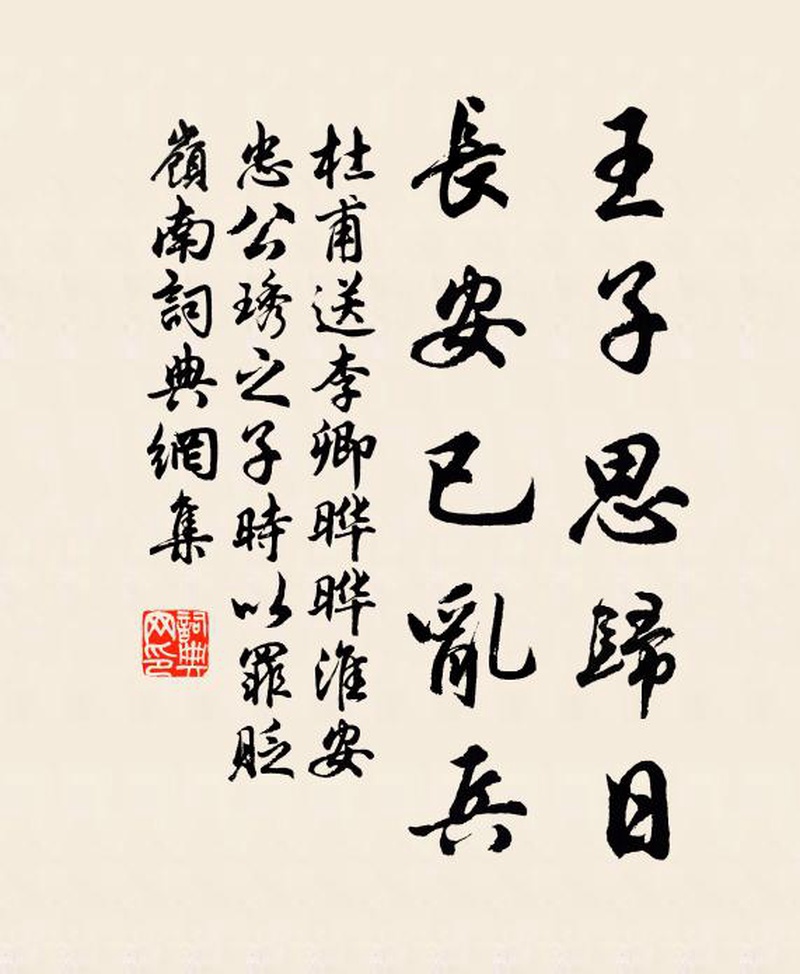 王子思歸日
長安已亂兵
杜甫送李卿晔晔淮安
忠公琇之子時以罪貶
嶺南詞典網集
詞典网印